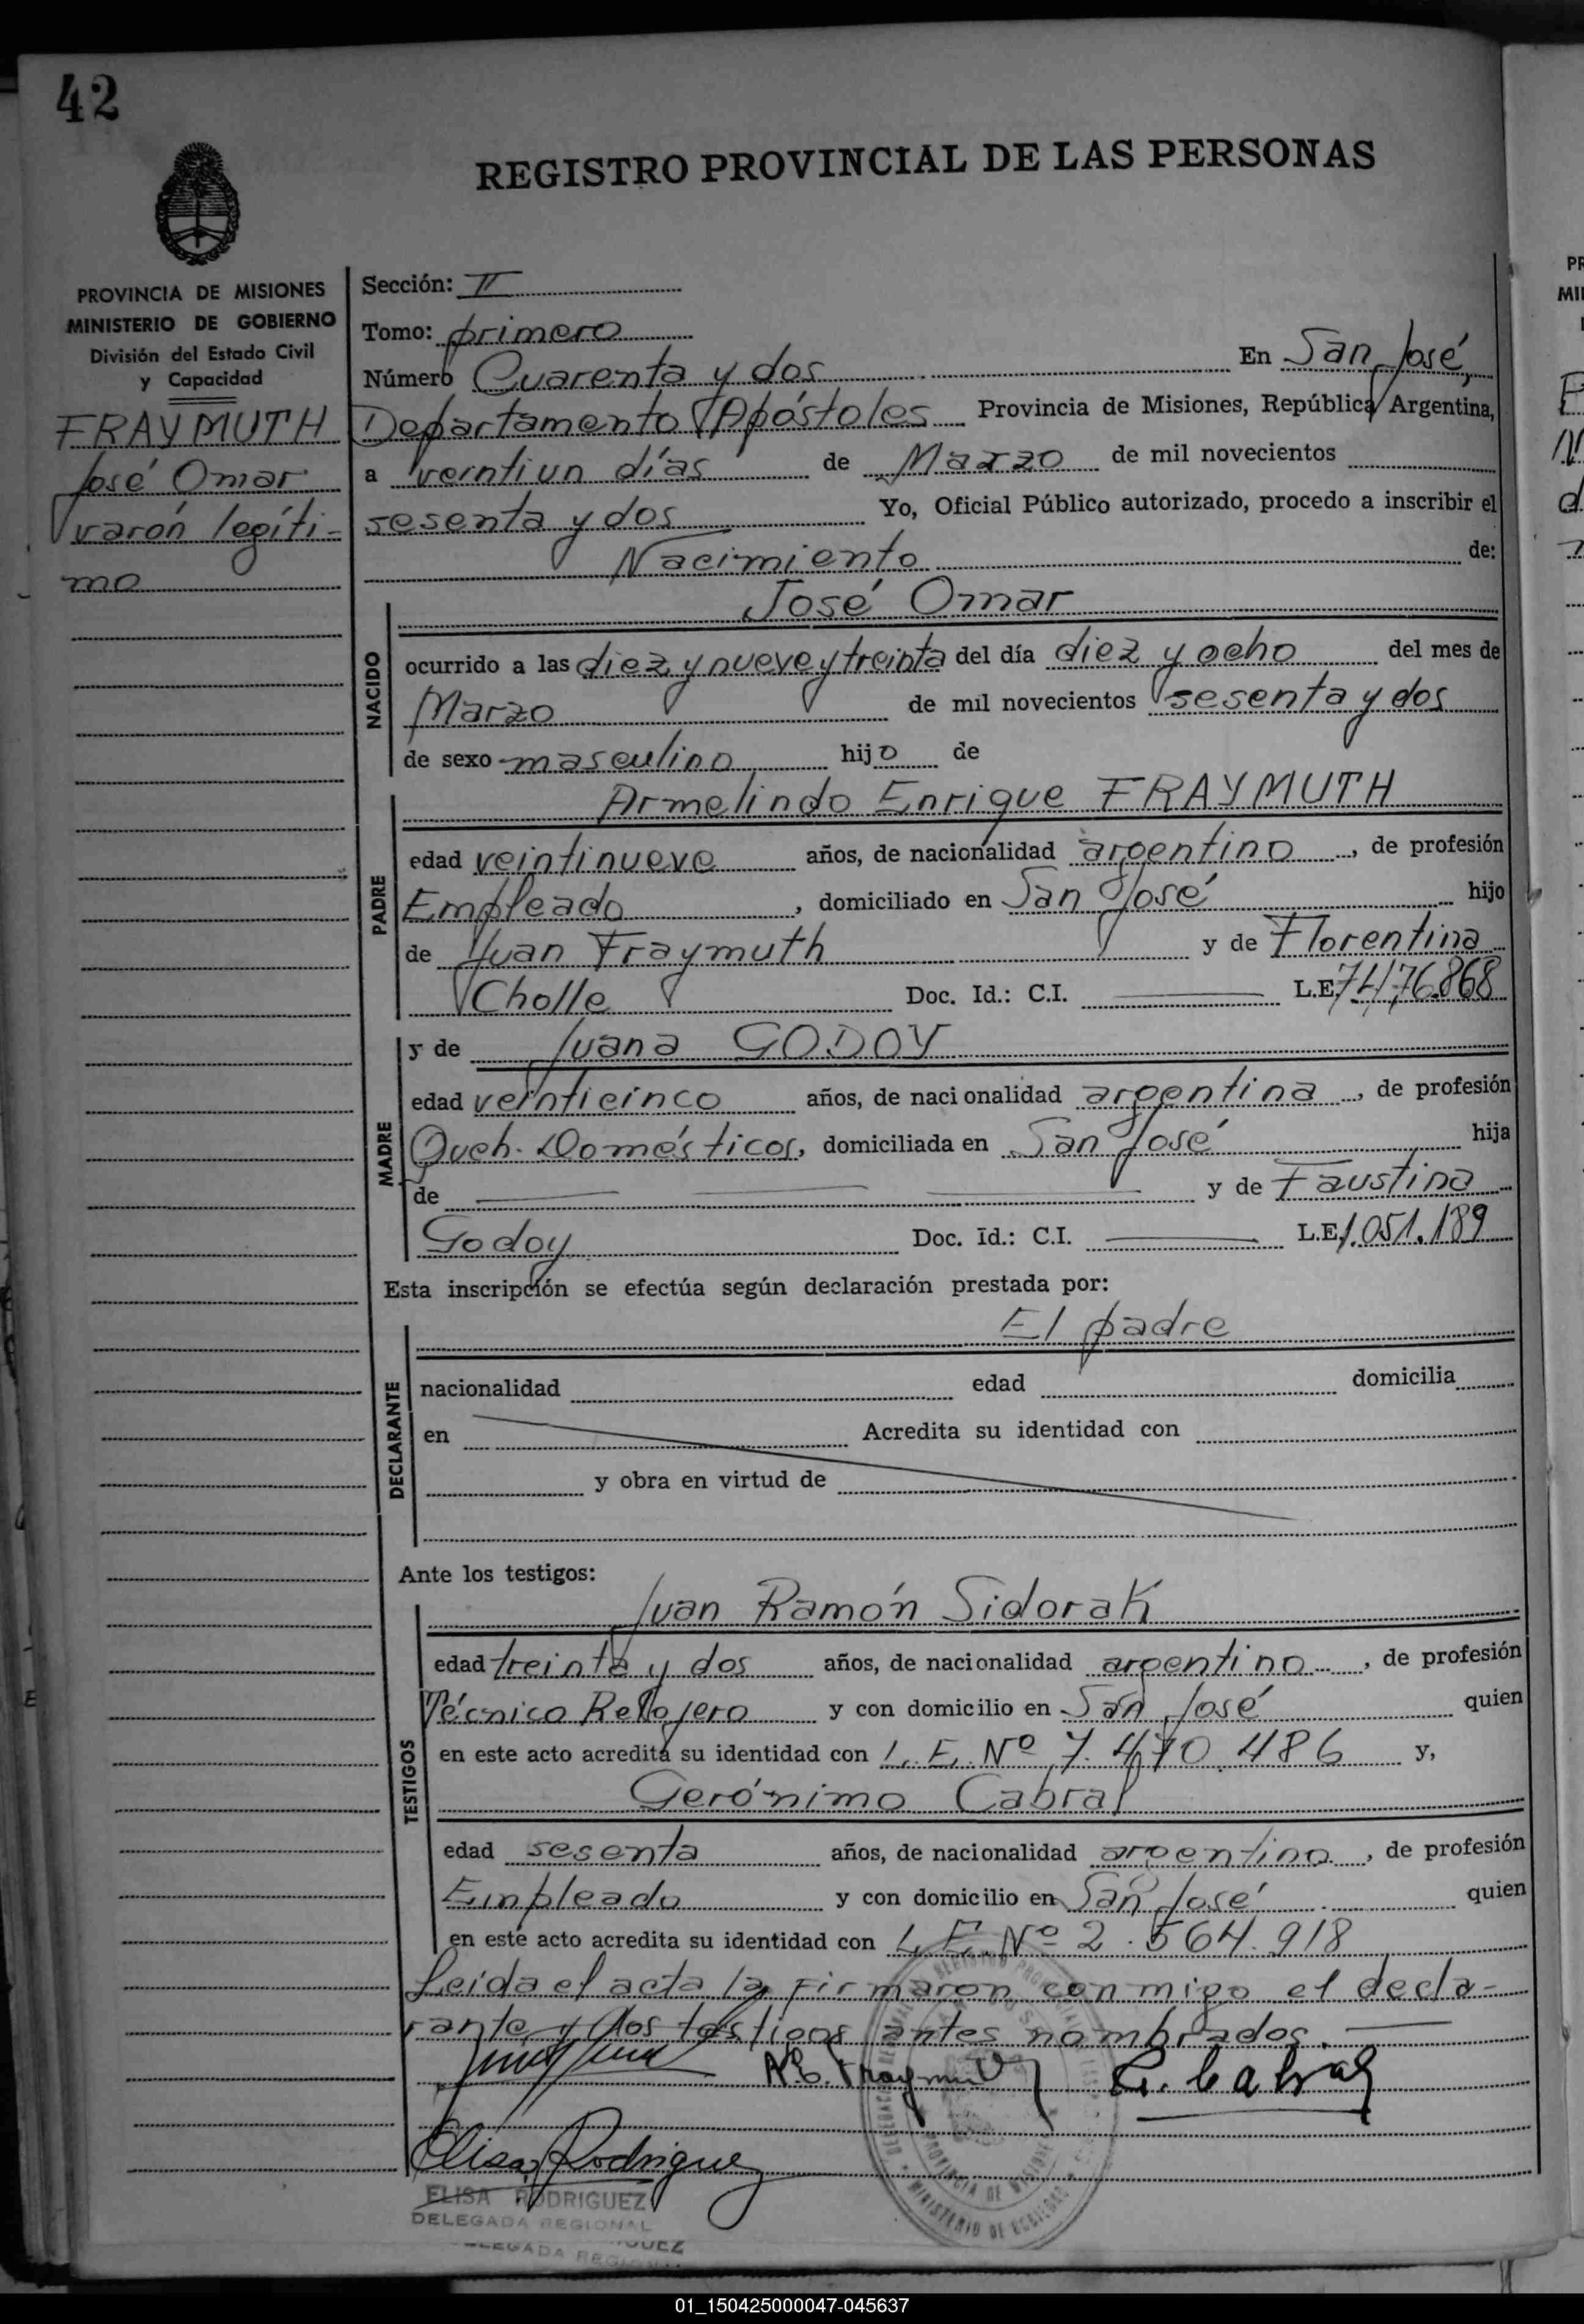 42
REGISTRO PROVINCIAL DE LAS PERSONAS
PROVINCIA DE MISIONES
MINISTERIO DE GOBIERNO
División del Estado Civil
y Capacidad
FRAYMUTH
José Omar
varón legíti-
mo
Sección: II
Tomo: primero
Número Cuarenta y dos En San José,
Departamento Apóstoles Provincia de Misiones, República Argentina,
a veintiun días de Marzo de mil novecientos
sesenta y dos Yo, Oficial Público autorizado, procedo a inscribir el
Nacimiento de:
NACIDO
José Omar
ocurrido a las diez y nueve y treinta del día diez y ocho del mes de
Marzo de mil novecientos sesenta y dos
de sexo masculino hijo de
PADRE
Armelindo Enrique FRAYMUTH
edad veintinueve años, de nacionalidad argentino, de profesión
Empleado, domiciliado en San José hijo
de Juan Fraymuth y de Florentina
Cholle Doc. Id.: C.I. L.E. 7.476.868
MADRE
y de Juana GODOY
edad veinticinco años, de nacionalidad argentina, de profesión
Queh. Domésticos, domiciliada en San José hija
de y de Faustina
Godoy Doc. Id.: C.I. L.E. 1.051.189
Esta inscripción se efectúa según declaración prestada por:
DECLARANTE
El padre
nacionalidad edad domicilia
en Acredita su identidad con
y obra en virtud de
Ante los testigos:
TESTIGOS
Juan Ramón Sidorak
edad treinta y dos años, de nacionalidad argentino, de profesión
Técnico Relojero y con domicilio en San José quien
en este acto acredita su identidad con L.E. Nº 7.470.486 y,
Gerónimo Cabral
edad sesenta años, de nacionalidad argentino, de profesión
Empleado y con domicilio en San José quien
en este acto acredita su identidad con L.E. Nº 2.564.918
Leída el acta la firmaron conmigo el decla-
rante y los testigos antes nombrados.
A.E. Fraymuth G. Cabral
Elisa Rodriguez
ELISA RODRIGUEZ
DELEGADA REGIONAL
PROVINCIA DE MISIONES
MINISTERIO DE GOBIERNO
01_150425000047-045637